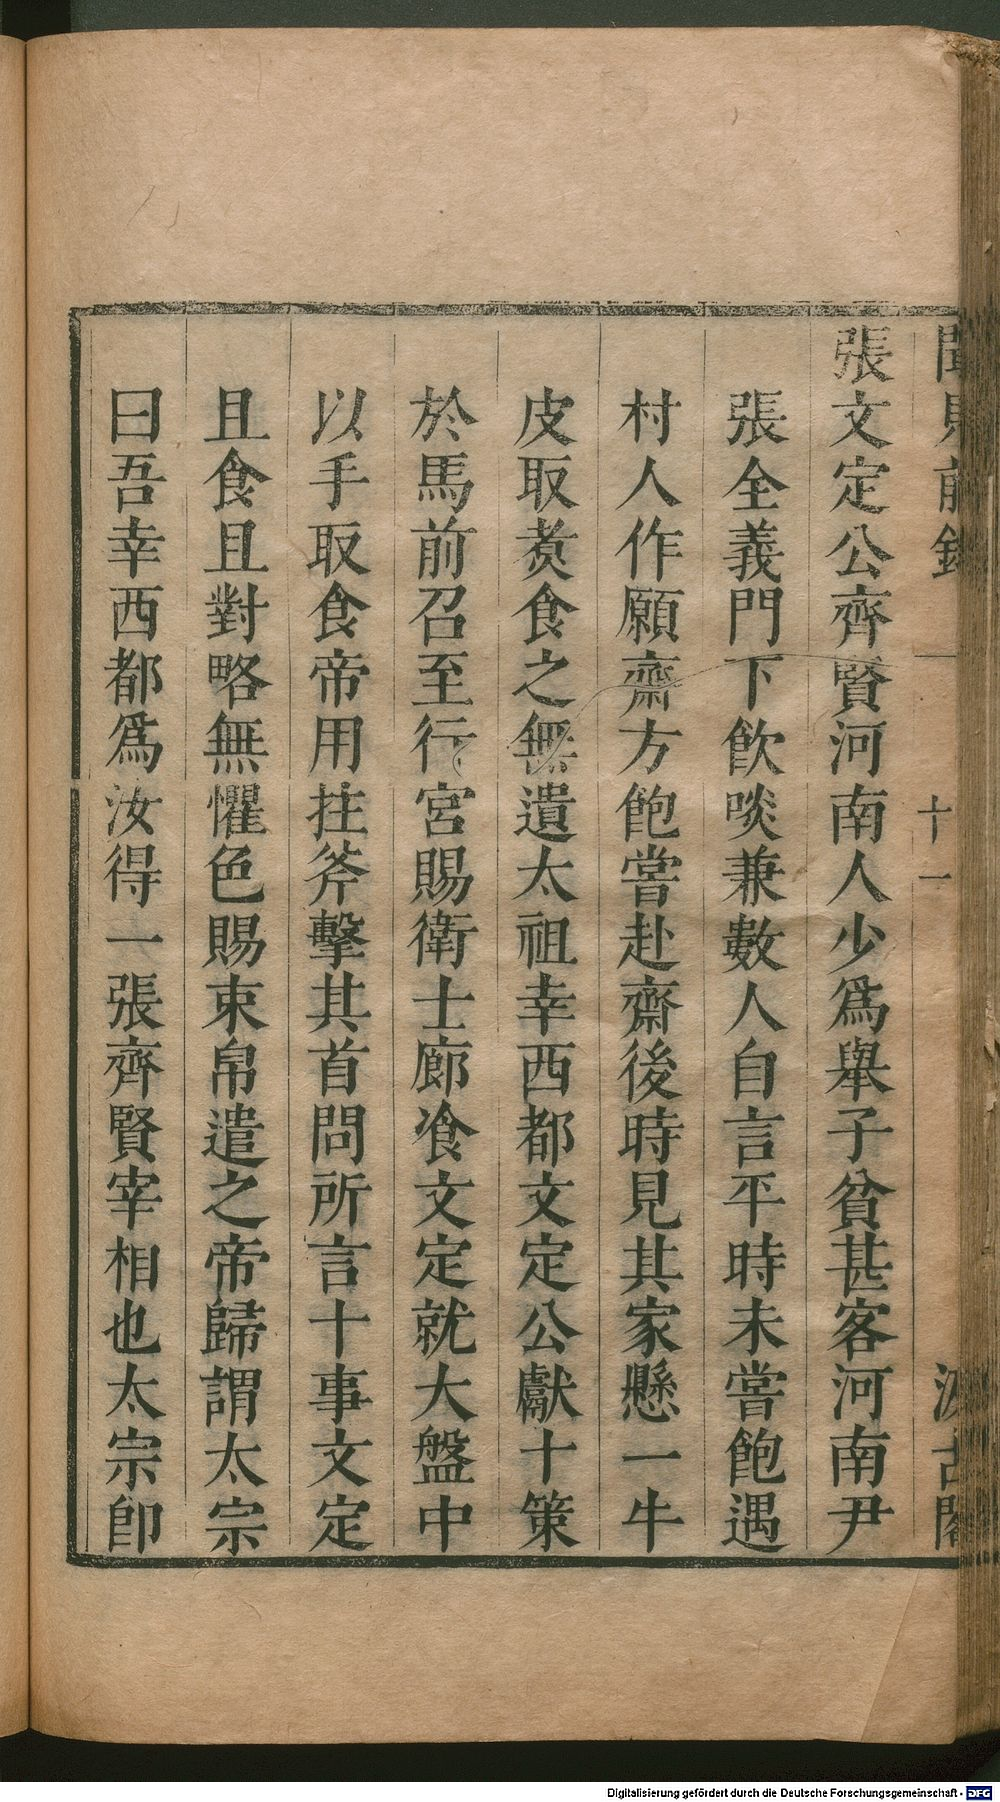 聞見前錄 一 十一 汲古閣
張文定公齊賢河南人少爲舉子貧甚客河南尹
張全義門下飲啖兼數人自言平時未嘗飽遇
村人作願齋方飽嘗赴齋後時見其家懸一牛
皮取煑食之無遺太祖幸西都文定公獻十策
於馬前召至行宮賜衛士廊飡文定就大盤中
以手取食帝用拄斧擊其首問所言十事文定
且食且對略無懼色賜束帛遣之帝歸謂太宗
曰吾幸西都爲汝得一張齊賢宰相也太宗卽
Digitalisierung gefördert durch die Deutsche Forschungsgemeinschaft - DFG